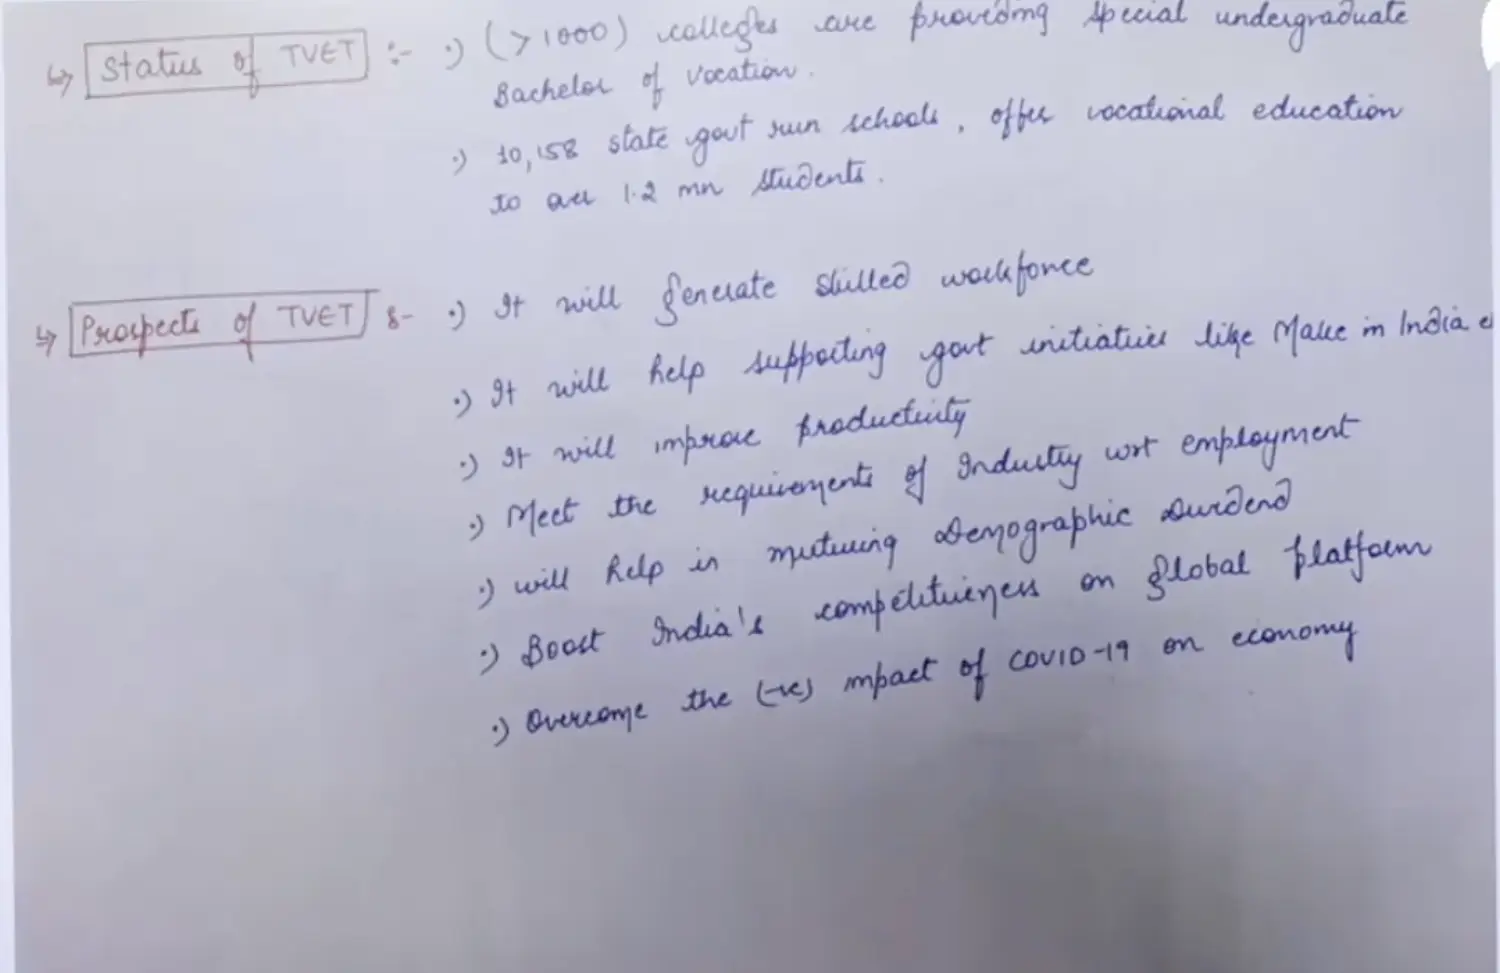 ↳ Status of TVET :- •) (>1000) colleges are providing special undergraduate
Bachelor of Vocation.
•) 10,158 state govt run schools, offer vocational education
to over 1.2 mn students.
↳ Prospects of TVET :- •) It will generate skilled workforce
•) It will help supporting govt initiatives like Make in India
•) It will improve productivity
•) Meet the requirements of Industry wrt employment
•) will help in demographic
•) Boost India's competitiveness on global platform
•) Overcome the (-ve) impact of COVID-19 on economy